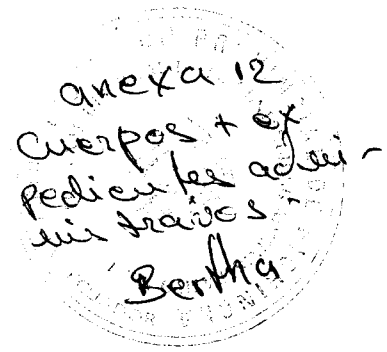 anexa 12
Cuerpos + ex
pedientes admi-
nistravos -
Bertha